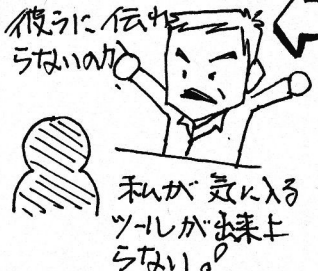 彼らに伝わ
らないのか
私が気に入る
ツールが出来上
らない。